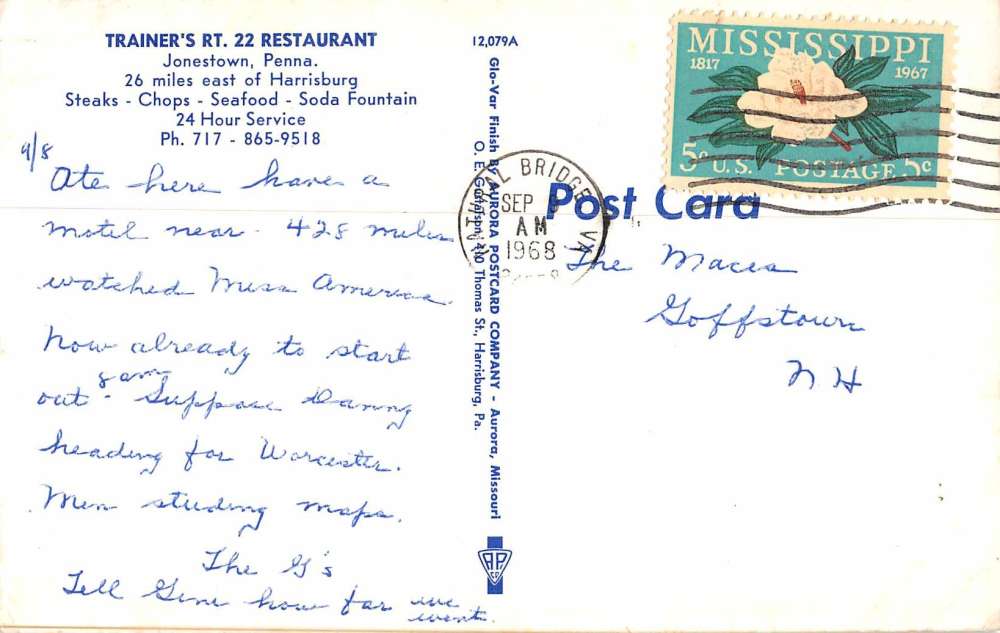 TRAINER'S RT. 22 RESTAURANT
Jonestown, Penna.
26 miles east of Harrisburg
Steaks - Chops - Seafood - Soda Fountain
24 Hour Service
Ph. 717 - 865-9518
9/8
Ate here have a
motel near - 428 miles
watched Miss America.
Now already to start
out - 8 am Suppose Danny
heading for Worcester.
Men studing maps.
The G's
Tell Gene how far we
went.
12,079A
Glo-Var Finish By AURORA POSTCARD COMPANY - Aurora, Missouri
O. E. Garrison, 410 Thomas St., Harrisburg, Pa.
APCO
MISSISSIPPI
1817 1967
5c U.S. POSTAGE 5c
NATURAL BRIDGE VA
SEP
AM
1968
Post Card
The Maces
Goffstown
N H